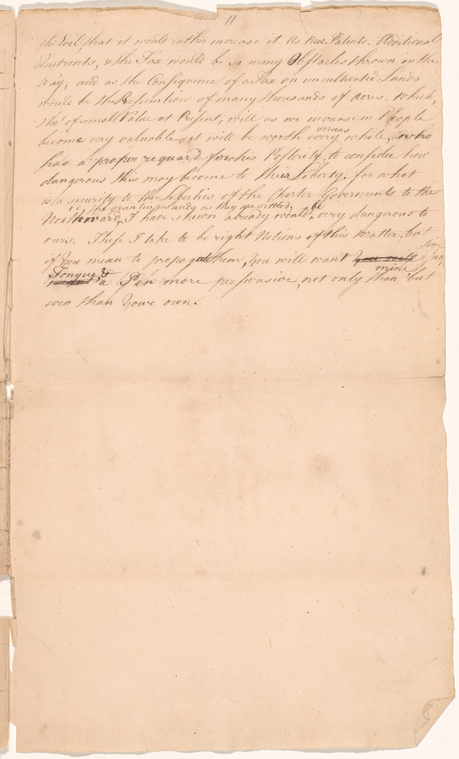 11
the Evil, that it would rather increase it. No New Patents, Additional
Quitrents, & the Tax would be so many Obstacles thrown in the
Way, and as the Consequence of a Tax on uncultivated Lands
would be the Resumtion of many thousands of Acres. Which,
tho' of small Value at Present, will as we increase in People
become very valuable it will be worth every mans while, who
has a proper reguard for his Posterity, to consider how
dangerous this may become to their Liberty. for what
is a security to the Liberties of the Charter Governments to the
Northward, I have shewn already would be very dangerous to
ours. These I take to be right Notions of this Matter, but
if you mean to propagate them, you will want
Tongue & a Pen more perswasive, not only than mine but
even than Your own.